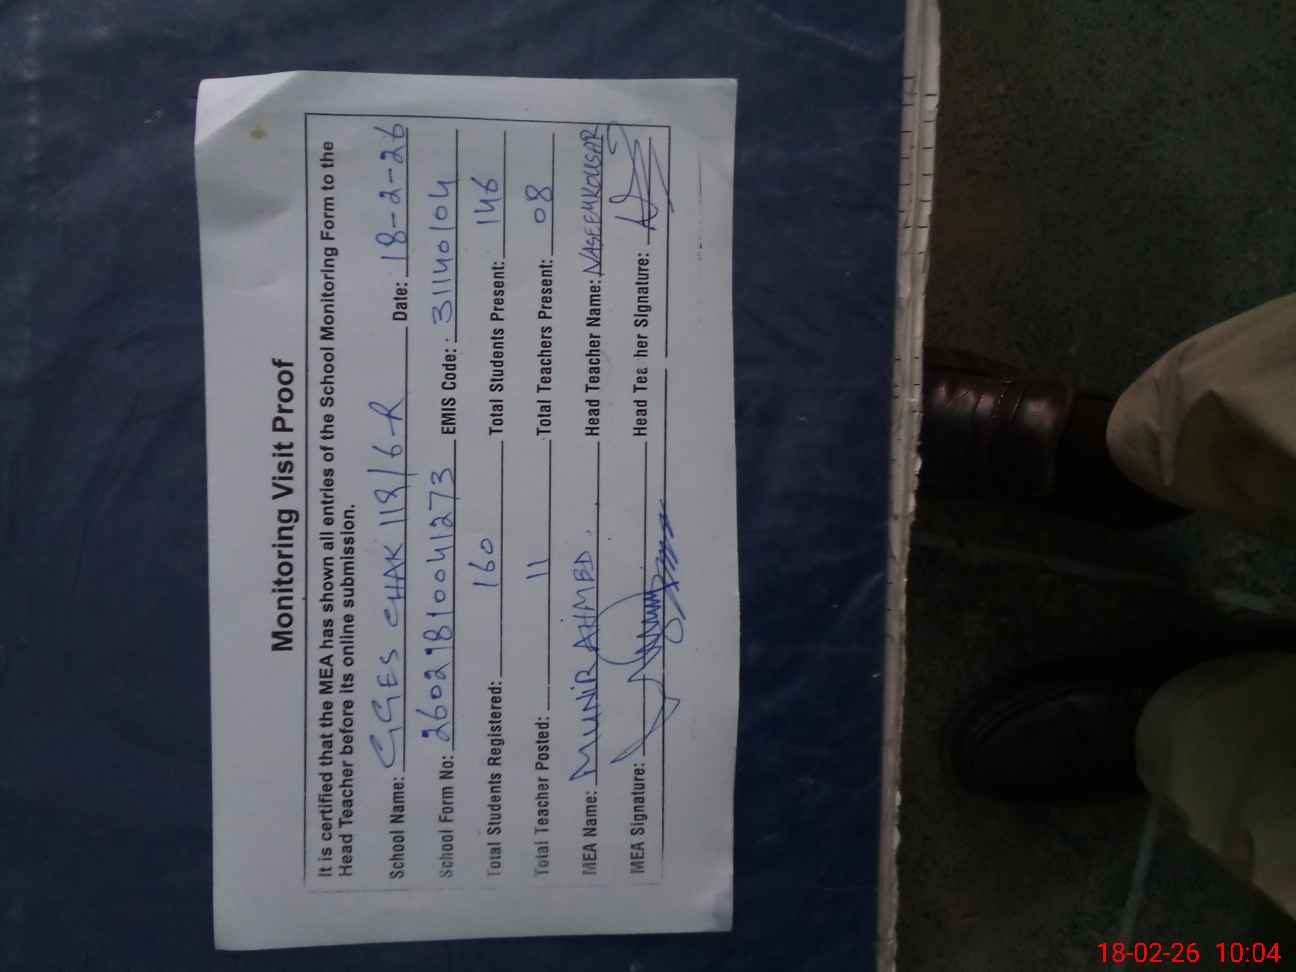 Monitoring Visit Proof
It is certified that the MEA has shown all entries of the School Monitoring Form to the
Head Teacher before its online submission.
School Name: GGES CHAK 118/6-R Date: 18-2-26
School Form No: 26029810041273 EMIS Code: 31140104
Total Students Registered: 160 Total Students Present: 146
Total Teacher Posted: 11 Total Teachers Present: 08
MEA Name: MUNIR AHMED. Head Teacher Name: NASEEM KOUSAR
MEA Signature: Head Teacher Signature:
18-02-26 10:04